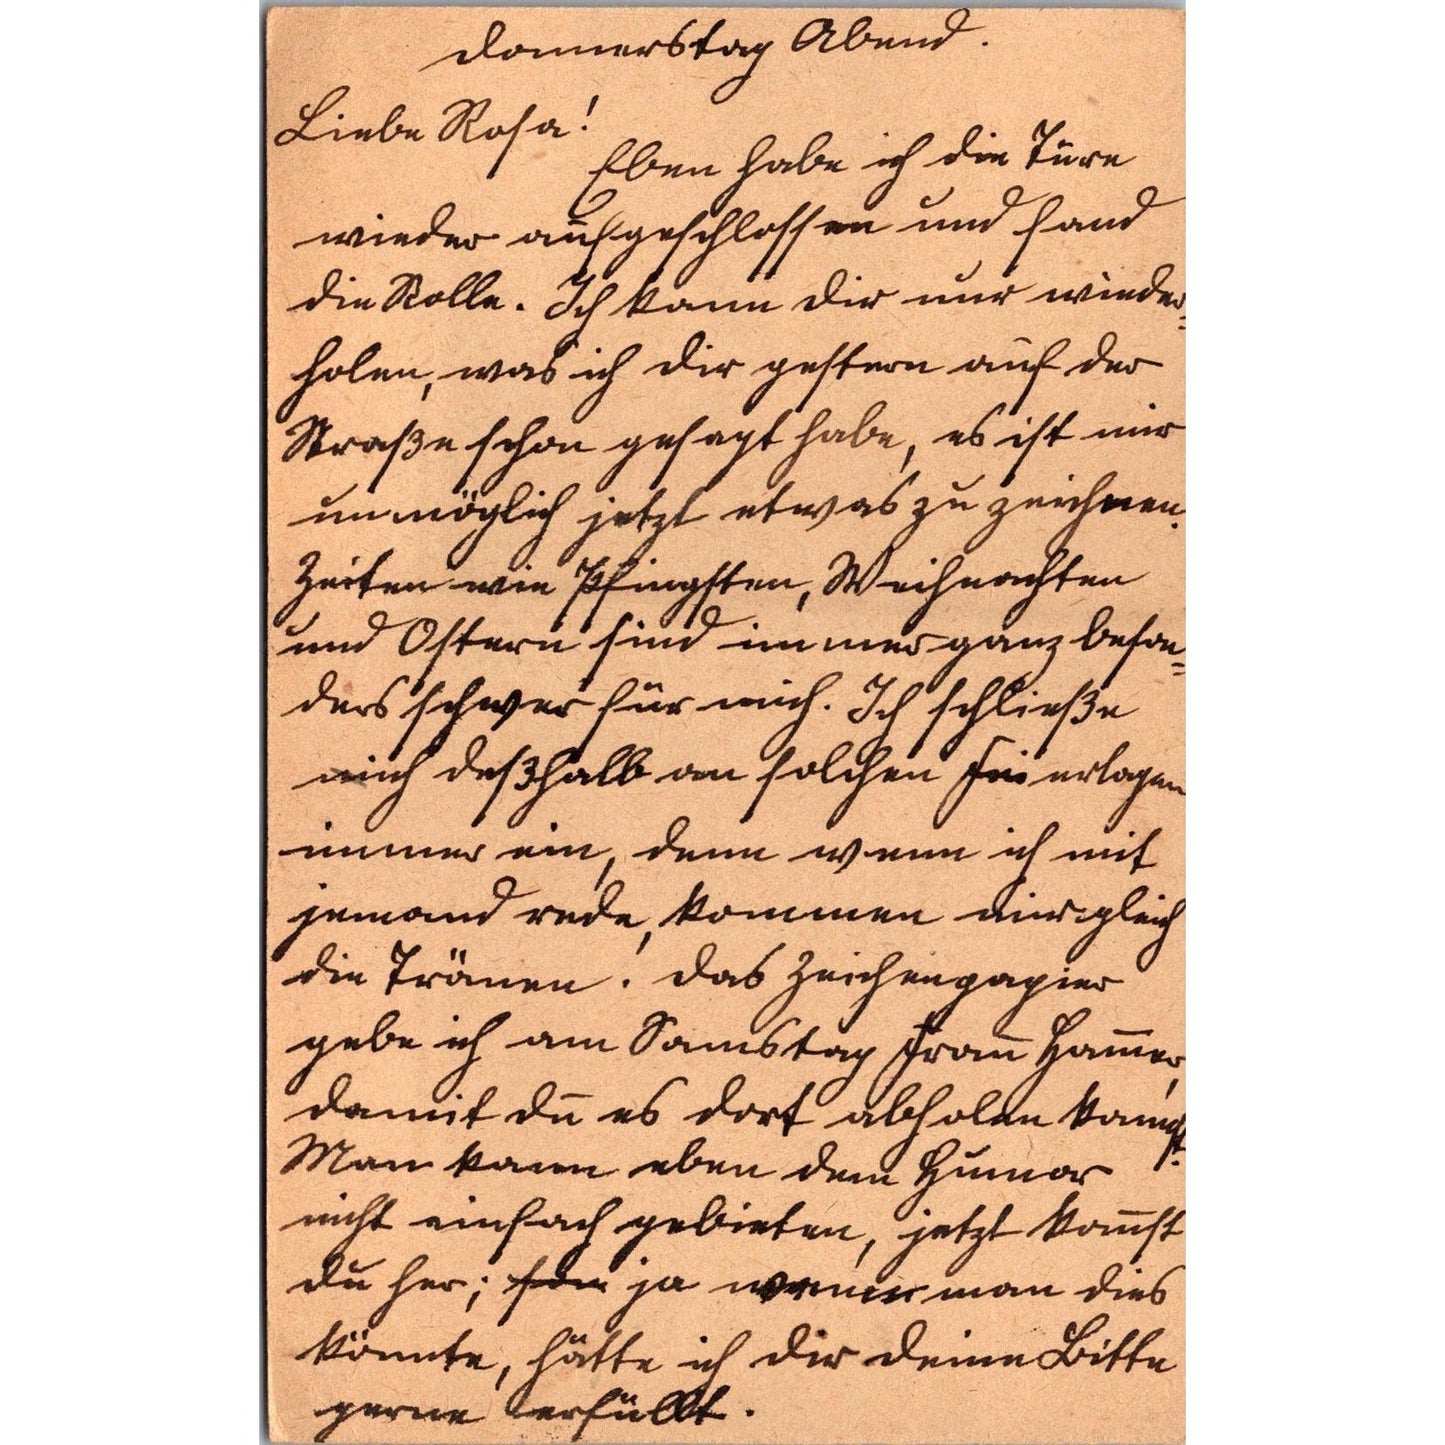 Donnerstag Abend.
Liebe Rosa!
Eben habe ich die Türe
wieder aufgeschlossen und fand
die Rolle. Ich kann Dir nur wieder=
holen, was ich Dir gestern auf der
Straße schon gesagt habe, es ist mir
unmöglich jetzt etwas zu zeichnen.
Zeiten wie Pfingsten, Weihnachten
und Ostern sind immer ganz beson=
ders schwer für mich. Ich schließe
mich deßhalb an solchen Feiertagen
immer ein, denn wenn ich mit
jemand rede, kommen mir gleich
die Tränen. Das Zeichenpapier
gebe ich am Samstag Frau Ham̄er,
damit du es dort abholen kannst.
Man kann eben dem Humor
nicht einfach gebieten, jetzt kom̄st
du her; ja wenn man dies
könnte, hätte ich Dir deine Bitte
gerne erfüllt.